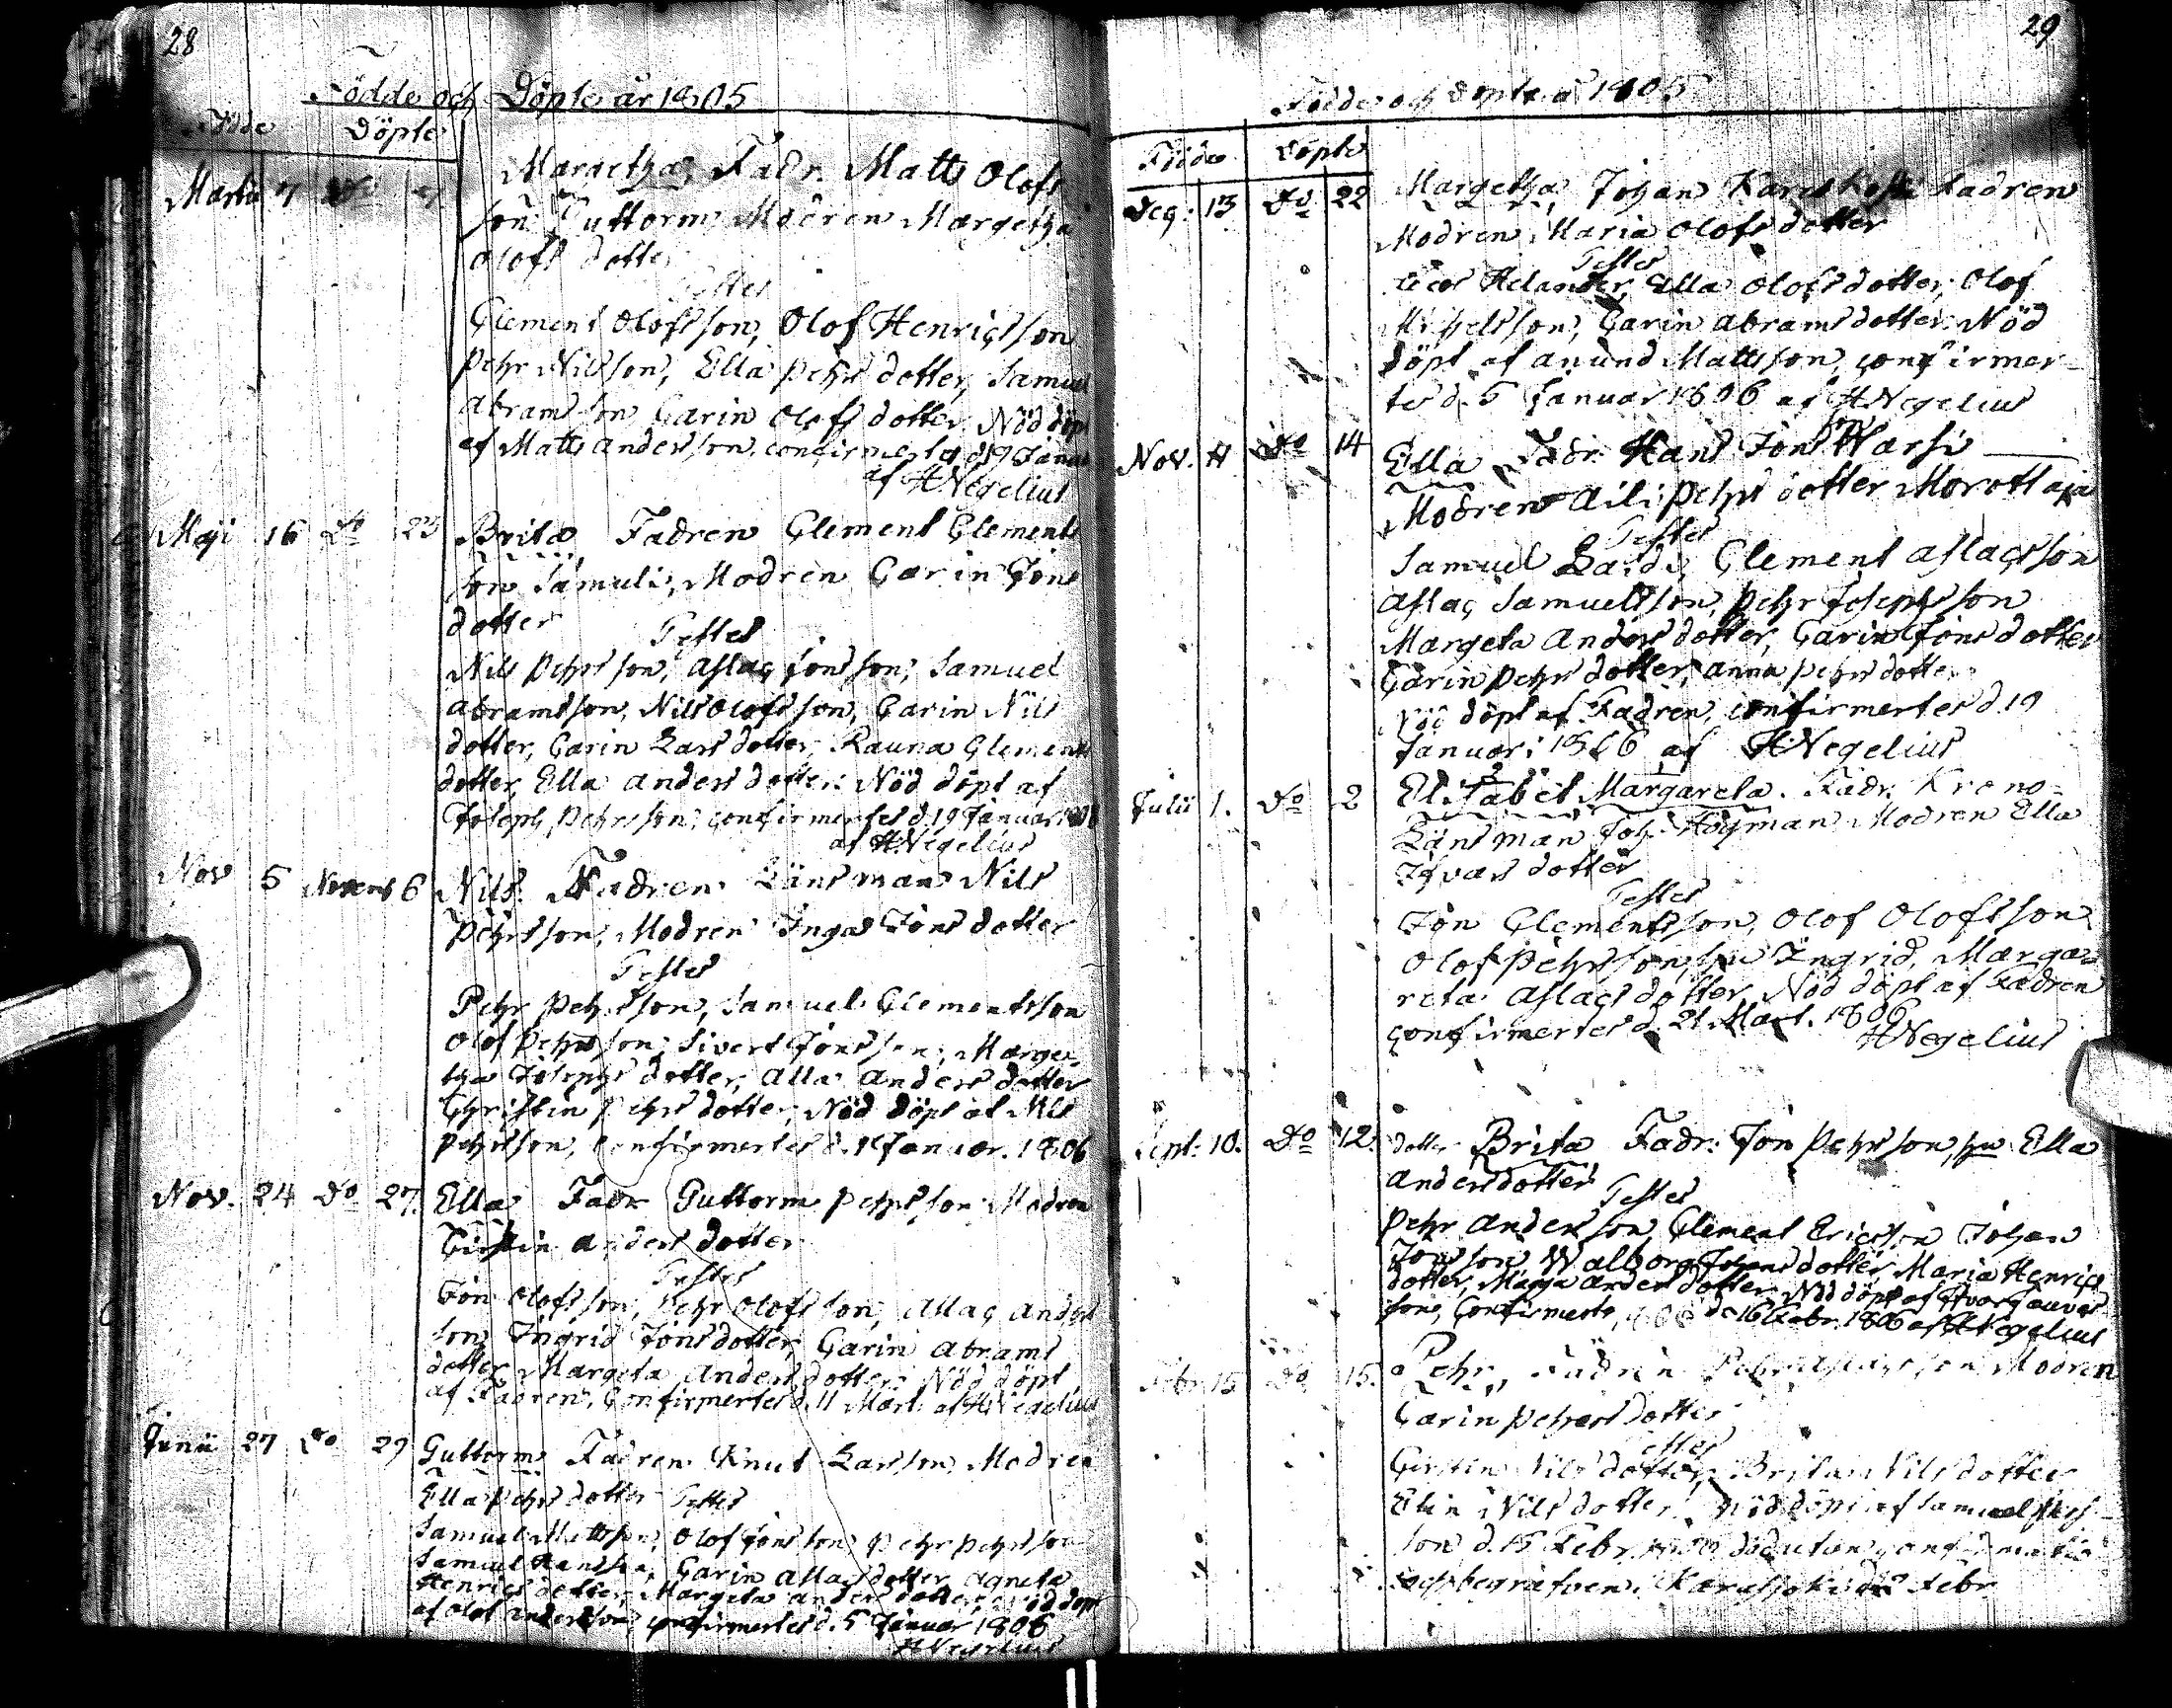 28
Födde och Döpte år 1805
Födde Döpte
Martii 7 Do 7 Margetha, Fadr. Matts Olofs
son Guttorm, Modren Margetha
Olofs dotter
Testes
Clement Olofsson, Olof Henricsson
Pehr Nilsson, Ella Pehrs dotter, Samuel
Abramsson Carin Olofs dotter. Nöd döpt
af Matts Andersson, confirmertes d 19 Januar
af HNegelius
Maji 16 Do 23 Brita Fadren Clement Clements
son Samuli, Modren Carin Jons
dotter
Testes
Nils Pehrsson, Aslac Jonsson, Samuel
Abramsson, Nils Olofsson, Carin Nils
dotter, Carin Lars dotter, Rauna Clements
dotter, Ella Anders dotter. Nöd döpt af
Joseph Pehrsson, confirmertes d. 19 Januar
af HNegelius
Nov 5 Novemb 6 Nils. Fadren Länsman Nils
Pehrsson, Modren Inga Jons dotter
Testes
Pehr Pehrsson, Samuel Clementsson
Olof Pehrsson, Sivert Jonsson, Marge
tha Josephs dotter, Alla Anders dotter
Christin Pehrs dotter, Nöd döpt af Nils
Pehrsson, confirmertes d. Januar. 1806
Nov. 24 Do 27. Ella Fadr Guttorm Pehrsson Modren
Kirstin Anders dotter
Testes
Jon Olofsson, Pehr Olofsson, Aslac Anders
son, Ingrid Jonsdotter, Carin Abrams
dotter, Margeta Anders dotter, Nöd döpt
af Fadren, Confirmertes d. 11 Mart. af HNegelius
Junii 27 Do 29 Guttorm Fadren Knut Larsson, Modren
Ella Pehrs dotter Testes
Samuel Mattsson, Olof Jonsson, Pehr Pehrsson
Samuel Hansson, Carin Aslacsdotter, Agneta
Henrics dotter, Margeta Anders dotter, Nöd döpt
af Olof Andersson, confirmertes d. 5 Januar 1806
HNegelius
29
Födde och Döpte å 1805
Födde Döpte
Dec: 13 Do 22 Margetha, Johan Fadren
Modren, Maria Olofs dotter
Testes
Helander, Ella Olofsdotter, Olof
Michelsson, Carin Abrams dotter. Nöd
döpt af Anund Mattsson, confirmer
tes d. 5 Januar 1806 af HNegelius
Nov. Do 14 Ella Fadr. Hans Jons Warsi
Modren Aili Pehrs dotter Morottaja
Testes
Samuel Clement Aslacsson
Aslac Samuelsson, Pehr Josephsson
Margeta Anders dotter, Carin Jons dotter
Carin Pehrs dotter, Anna Pehrs dotter
Nöd döpt af Fadren, confirmertes d. 19
Januari 1806 af HNegelius
Julii 1. Do 2 Elisabet Margareta. Fadr. Krono-
Länsman Joh. Högman Modren Ella
Ifvars dotter
Testes
Jon Clementsson, Olof Olofsson
Olof Pehrsson, hu Ingrid, Marga-
reta Aslacs dotter, Nöd döpt af Fadren
confirmertes d. 21 Mart. 1806
HNegelius
Sept. 10. Do 12. dotter Brita Fadr. Jon Pehrsson, hu Ella
Andersdotter
Testes
Pehr Andersson, Clement Ericsson Johan
Jonsson, Walborg Johans dotter, Maria Henrics
dotter, Marja Anders dotter, Nöd döpt af
son, Confirmerte d. 16 Febr. 1806 af HNegelius
Febr. 15 Do 15. Pehr, Fadren Pehr Modren
Carin Pehrs dotter
Testes
Kirstin Nils dotter, Brita Nils dotter
Elin Nils dotter, Nöd döpt af Samuel
son d. 15 Febr. död utan confirmation
och begrafven i Febr